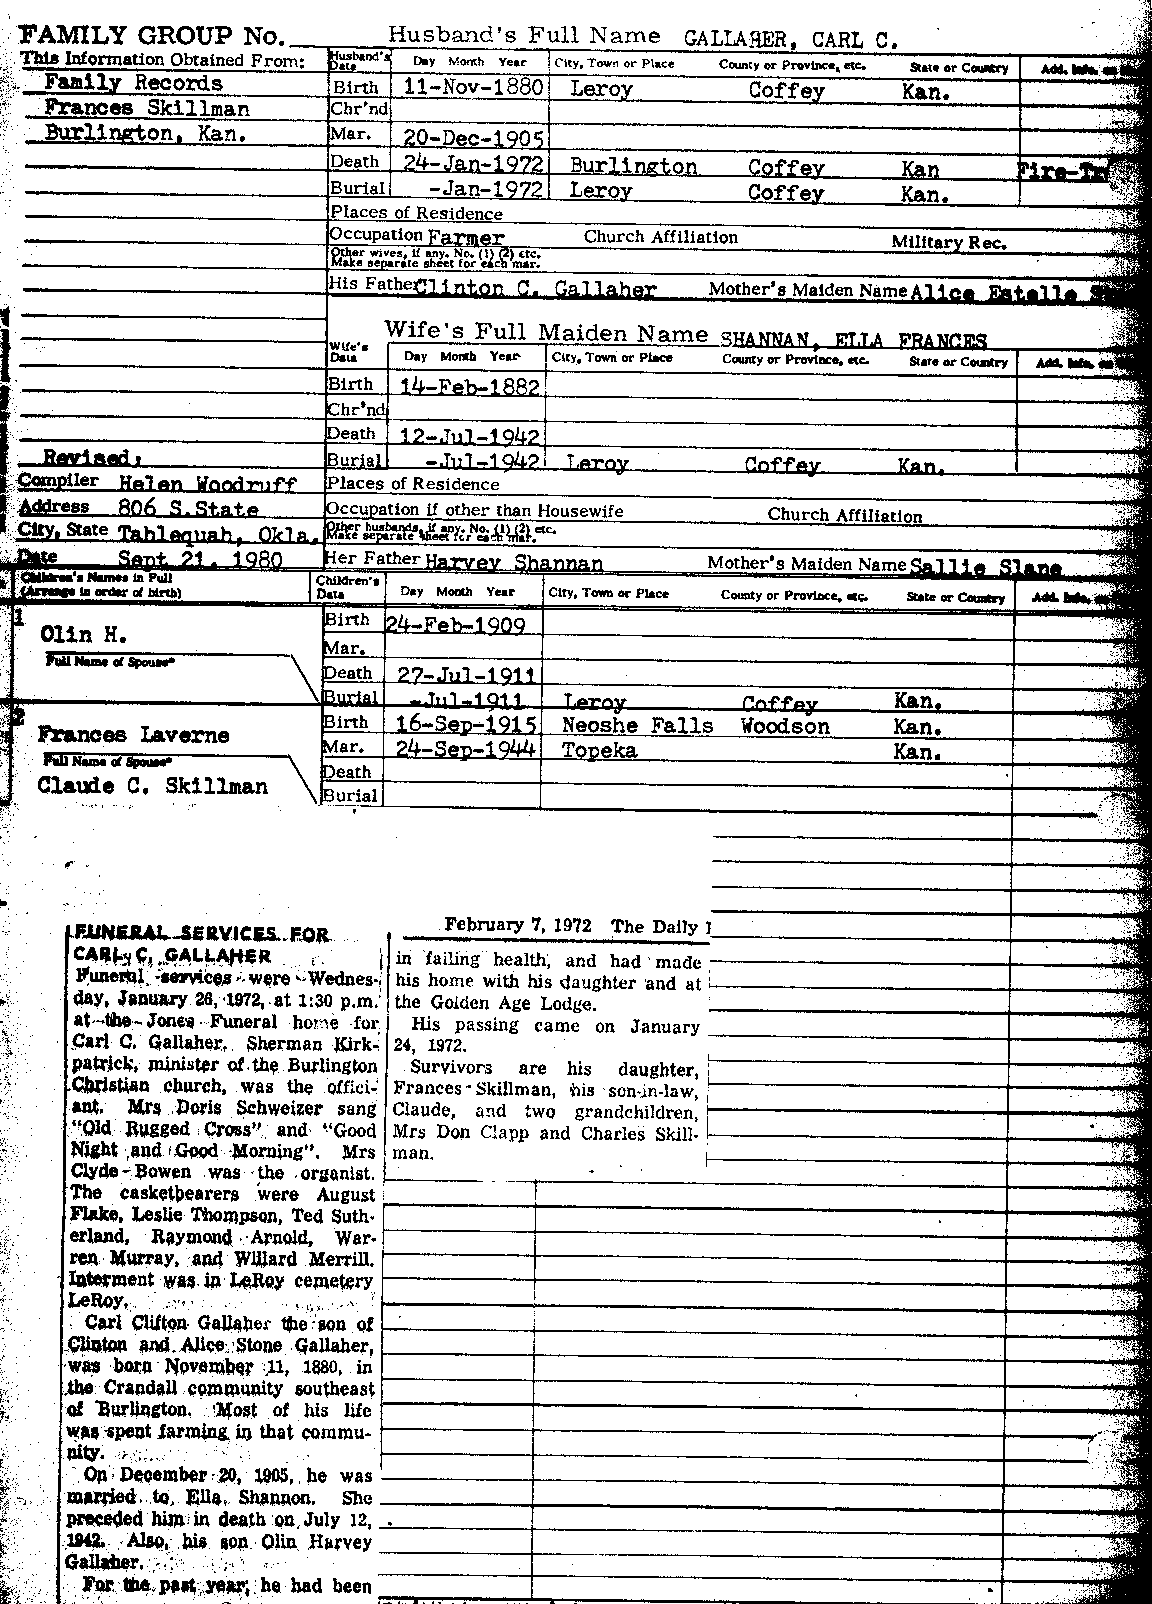 FAMILY GROUP No.
Husband's Full Name GALLAHER, CARL C.
This Information Obtained From:
Family Records
Frances Skillman
Burlington, Kan.
Husband's Data Day Month Year City, Town or Place County or Province, etc. State or Country Add. Info. on
Birth 11-Nov-1880 Leroy Coffey Kan.
Chr'nd
Mar. 20-Dec-1905
Death 24-Jan-1972 Burlington Coffey Kan
Burial -Jan-1972 Leroy Coffey Kan.
Places of Residence
Occupation Farmer Church Affiliation Military Rec.
Other wives, if any. No. (1) (2) etc.
Make separate sheet for each mar.
His Father Clinton C. Gallaher Mother's Maiden Name Alice Estelle
Wife's Full Maiden Name SHANNAN, ELLA FRANCES
Wife's Data Day Month Year City, Town or Place County or Province, etc. State or Country Add. Info. on
Birth 14-Feb-1882
Chr'nd
Death 12-Jul-1942
Burial -Jul-1942 Leroy Coffey Kan.
Places of Residence
Occupation if other than Housewife Church Affiliation
Other husbands, if any. No. (1) (2) etc.
Make separate sheet for each mar.
Her Father Harvey Shannan Mother's Maiden Name Sallie Slane
Revised:
Compiler Helen Woodruff
Address 806 S.State
City, State Tahlequah, Okla.
Date Sept 21, 1980
Children's Names in Full
(Arrange in order of birth)
Children's Data Day Month Year City, Town or Place County or Province, etc. State or Country Add. Info. on
1
Olin H.
Full Name of Spouse*
Birth 24-Feb-1909
Mar.
Death 27-Jul-1911
Burial -Jul-1911 Leroy Coffey Kan.
2
Frances Laverne
Full Name of Spouse*
Claude C. Skillman
Birth 16-Sep-1915 Neoshe Falls Woodson Kan.
Mar. 24-Sep-1944 Topeka Kan.
Death
Burial
FUNERAL SERVICES FOR
CARL C. GALLAHER
Funeral services were Wednes-
day, January 26, 1972, at 1:30 p.m.
at the Jones Funeral home for
Carl C. Gallaher. Sherman Kirk-
patrick, minister of the Burlington
Christian church, was the offici-
ant. Mrs Doris Schweizer sang
"Old Rugged Cross" and "Good
Night and Good Morning". Mrs
Clyde Bowen was the organist.
The casketbearers were August
Flake, Leslie Thompson, Ted Suth-
erland, Raymond Arnold, War-
ren Murray, and Willard Merrill.
Interment was in LeRoy cemetery
LeRoy.
Carl Clifton Gallaher the son of
Clinton and Alice Stone Gallaher,
was born November 11, 1880, in
the Crandall community southeast
of Burlington. Most of his life
was spent farming in that commu-
nity.
On December 20, 1905, he was
married to Ella Shannon. She
preceded him in death on July 12,
1942. Also, his son Olin Harvey
Gallaher.
For the past year, he had been
February 7, 1972 The Daily
in failing health, and had made
his home with his daughter and at
the Golden Age Lodge.
His passing came on January
24, 1972.
Survivors are his daughter,
Frances Skillman, his son-in-law,
Claude, and two grandchildren,
Mrs Don Clapp and Charles Skill-
man.